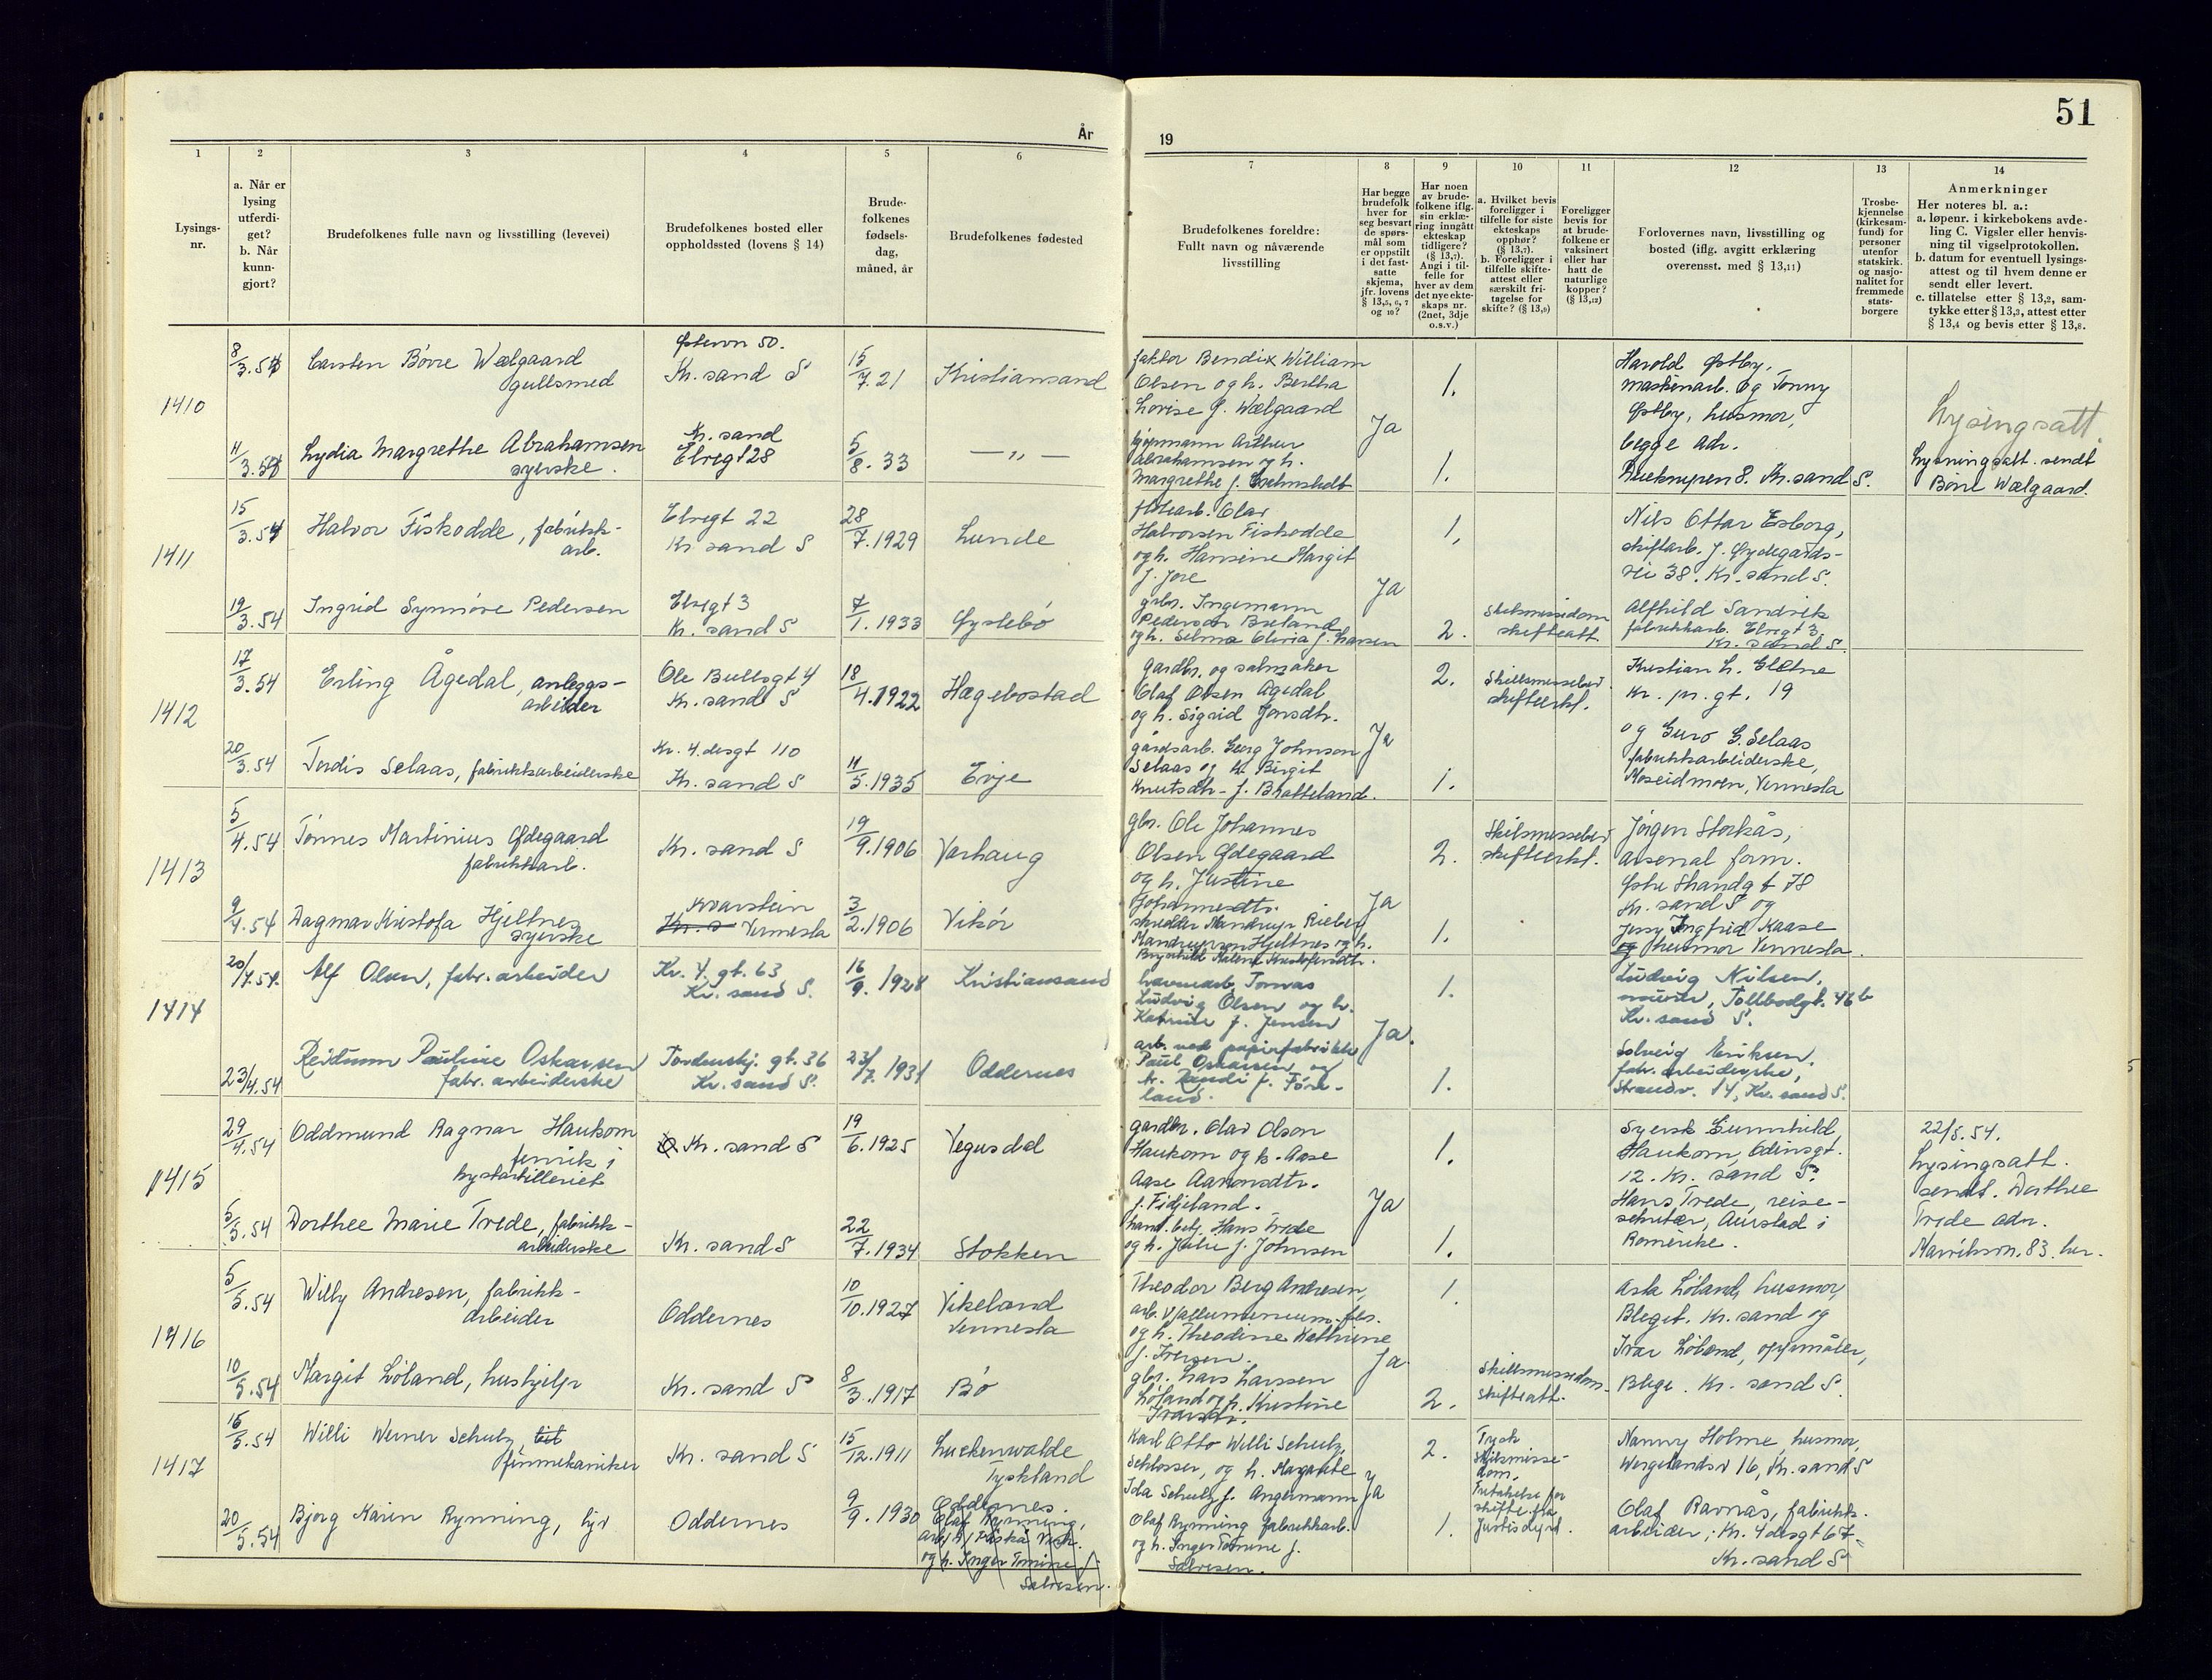 51
År
19
1
2
3
4
5
6
7
8
9
10
11
12
13
14
Lysings-
nr.
a. Når er
lysing
utferdi-
get?
b. Når
kunn-
gjort?
Brudefolkenes fulle navn og livsstilling (levevei)
Brudefolkenes bosted eller
oppholdssted (lovens § 14)
Brude-
folkenes
fødsels-
dag,
måned, år
Brudefolkenes fødested
Brudefolkenes foreldre:
Fullt navn og nåværende
livsstilling
Har begge
brudefolk
hver for
seg besvart
de spørs-
mål som
er oppstilt
i det fast-
satte
skjema,
jfr. lovens
§ 13,5, 6, 7
og 10?
Har noen
av brude-
folkene iflg.
sin erklæ-
ring inngått
ekteskap
tidligere?
(§ 13,7).
Angi i til-
felle for
hver av dem
det nye ekte-
skaps nr.
(2net, 3dje
o.s.v.)
a. Hvilket bevis
foreligger i
tilfelle for siste
ekteskaps
opphør?
(§ 13,7).
b. Foreligger i
tilfelle skifte-
attest eller
særskilt fri-
tagelse for
skifte? (§ 13,9)
Foreligger
bevis for
at brude-
folkene er
vaksinert
eller har
hatt de
naturlige
kopper?
(§ 13,12)
Forlovernes navn, livsstilling og
bosted (iflg. avgitt erklæring
overensst. med § 13,11)
Trosbe-
kjennelse
(kirkesam-
fund) for
personer
utenfor
statskirk.
og nasjo-
nalitet for
fremmede
stats-
borgere
Anmerkninger
Her noteres bl. a.:
a. løpenr. i kirkebokens avde-
ling C. Vigsler eller henvis-
ning til vigselprotokollen.
b. datum for eventuell lysings-
attest og til hvem denne er
sendt eller levert.
c. tillatelse etter § 13,2, sam-
tykke etter § 13,3, attest etter
§ 13,4 og bevis etter § 13,8.
1410
8/3.54
Carsten Börre Wælgaard
gullsmed
Østervn 50.
Kr. sand S
15/7.21
Kristiansand
faktor Bendix William
Olsen og h. Bertha
Lovise f. Wælgaard
1.
Harold Østby,
maskinarb. og Tonny
Østby, husmor,
begge adr.
Kr. sand S.
11/3.54
Lydia Margrethe Abrahamsen
syerske.
Kr. sand
Elvegt 28
5/8.33
— „ —
Arthur
Abrahamsen og h.
Margrethe f.
Ja
1.
Lysingsatt.
Lysningsatt. sendt
Børre Wælgaard.
1411
15/3.54
Halvor Fiskodde, fabrikk-
arb.
Elvegt 22
Kr sand S
28/7.1929
Lunde
Olav
Halvorsen Fiskodde
og h. Hansine Margit
f. Jore
1.
Nils Ottar Esborg,
skiftarb. J. Øydegards-
vei 38. Kr. sand S.
19/3.54
Ingrid Synnöve Pedersen
Elvegt 3
Kr. sand S
7/1.1933
Øyslebö
gbr. Ingemann
Pedersen Breland
og h. Selma Olivia f. Hansen
Ja
2.
Skilsmissedom
skifteatt.
Alfhild Sandvik
fabrikkarb. Elvegt 3.
Kr. sand S.
1412
17/3.54
Erling Ågedal, anleggs-
arbeider
Ole Bullsgt 4
Kr. sand S
18/4.1922
Hægebostad
gardbr. og salmaker
Olaf Olsen Ågedal
og h. Sigrid Jonsdtr.
2.
Skillsmissebev.
skifteerkl.
Kristian L. Glætne
Kr. pr. gt. 19
20/3.54
Tordis Selaas, fabrikkarbeiderske
Kr. 4. desgt 110
Kr. sand S
11/5.1935
Evje
gårdsarb. Georg Johnson
Selaas og h. Birgit
Knutsdtr. f. Bratteland.
Ja
1.
og Guro G. Selaas
fabrikkarbeiderske,
Moseidmoen, Vennesla
1413
5/4.54
Tönnes Martinius Ødegaard
fabrikkarb.
Kr. sand S
19/9.1906
Varhaug
gbr. Ole Johannes
Olsen Ødegaard
og h. Justine
Johannesdtr.
2.
Skilsmissebev
skifteerkl.
Jörgen Storkås,
arsenal form.
Østre Strandgt 78
Kr. sand S og
9/4.54
Dagmar Kristofa Hjeltnes
syerske
Kvarstein
Kr. s Vennesla
3/2.1906
Vikör
skredder Mandrup Rieber
Mandrupson Hjeltnes og h.
Brynhild Malene Kristofersdtr.
Ja
1.
Jenny Ingfrid Kaase
og husmor Vennesla.
1414
20/4.54.
Alf Olsen, fabr. arbeider
Kr. 4. gt. 63
Kr. sand S.
16/9.1928
Kristiansand
havnearb. Tomas
Ludvig Olsen og h.
Katrine f. Jensen
1.
Ludvig Nilsen,
murer, Tollbodgt. 46 b
Kr. sand S.
23/4.54
Reidunn Pauline Oskarsen
fabr. arbeiderske
Tordenskj. gt. 36
Kr. sand S.
23/7.1931
Oddernes
arb. ved papirfabrikk
Paul Oskarsen og
h. Randi f. Före-
land.
Ja.
1.
Solveig Eriksen,
fabr. arbeiderske,
Strandv. 14, Kr. sand S.
1415
29/4.54
Oddmund Ragnar Haukom
fenrik i
kystartilleriet
Kr. sand S
19/6.1925
Vegusdal
gardbr. Olav Olson
Haukom og h. Aase
Aase Aanonsdtr.
f. Fidjeland.
1.
Syersk Gunnhild
Haukom, Odinsgt.
12. Kr. sand S.
22/5.54.
Lysingsatt.
sendt. Dorthee
Trede adr.
Marviksvn. 83. her.
5/5.54
Dorthee Marie Trede, fabrikk-
arbeiderske
Kr. sand S
22/7.1934
Stokken
hand. betj. Hans Trede
og h. Julie f. Johnsen
Ja
1.
Hans Trede, reise-
sekretær, Aurstad i
Romerike.
1416
5/5.54
Willy Andresen, fabrikk-
arbeider
Oddernes
10/10.1927
Vikeland
Vennesla
Theodor Berg Andresen,
arb. v/alluminium.fbr.
og h. Theodine Kathrine
f. Iversen.
1.
Asta Löland, husmor,
Bleget. Kr. sand og
Ivar Löland, oppmåler,
10/5.54
Margit Löland, hushjelp
Kr. sand S
8/3.1917
Bö
gbr. Lars Larssen
Löland og h. Kristine
Ivarsdtr.
Ja
2.
Skillsmissedom.
skifteatt.
Blege. Kr. sand S.
1417
15/5.54
Willi Werner Schulz
finmekaniker
Kr. sand S
15/12.1911
Luckenwalde
Tyskland
Karl Otto Willi Schulz,
Schlosser, og h. Margarete
Ida Schulz f. Angermann
Ja
2.
Tysk
Skilsmisse-
dom.
Fritakelse for
skifte fra
Justisdept.
Nanny Holme, husmor,
Wergelandsv 16, Kr. sand S
20/5.54
Bjørg Karin Rynning,
Oddernes
9/9.1930
Oddernes.
Olaf Rynning,
og h. Inger Tomine f.
Salvesen.
Olaf Rynning fabrikkarb.
og h. Inger Tomine f.
Salvesen.
1.
Olaf Ravnås, fabrikk-
arbeider, Kr. 4 desgt 67
Kr. sand S